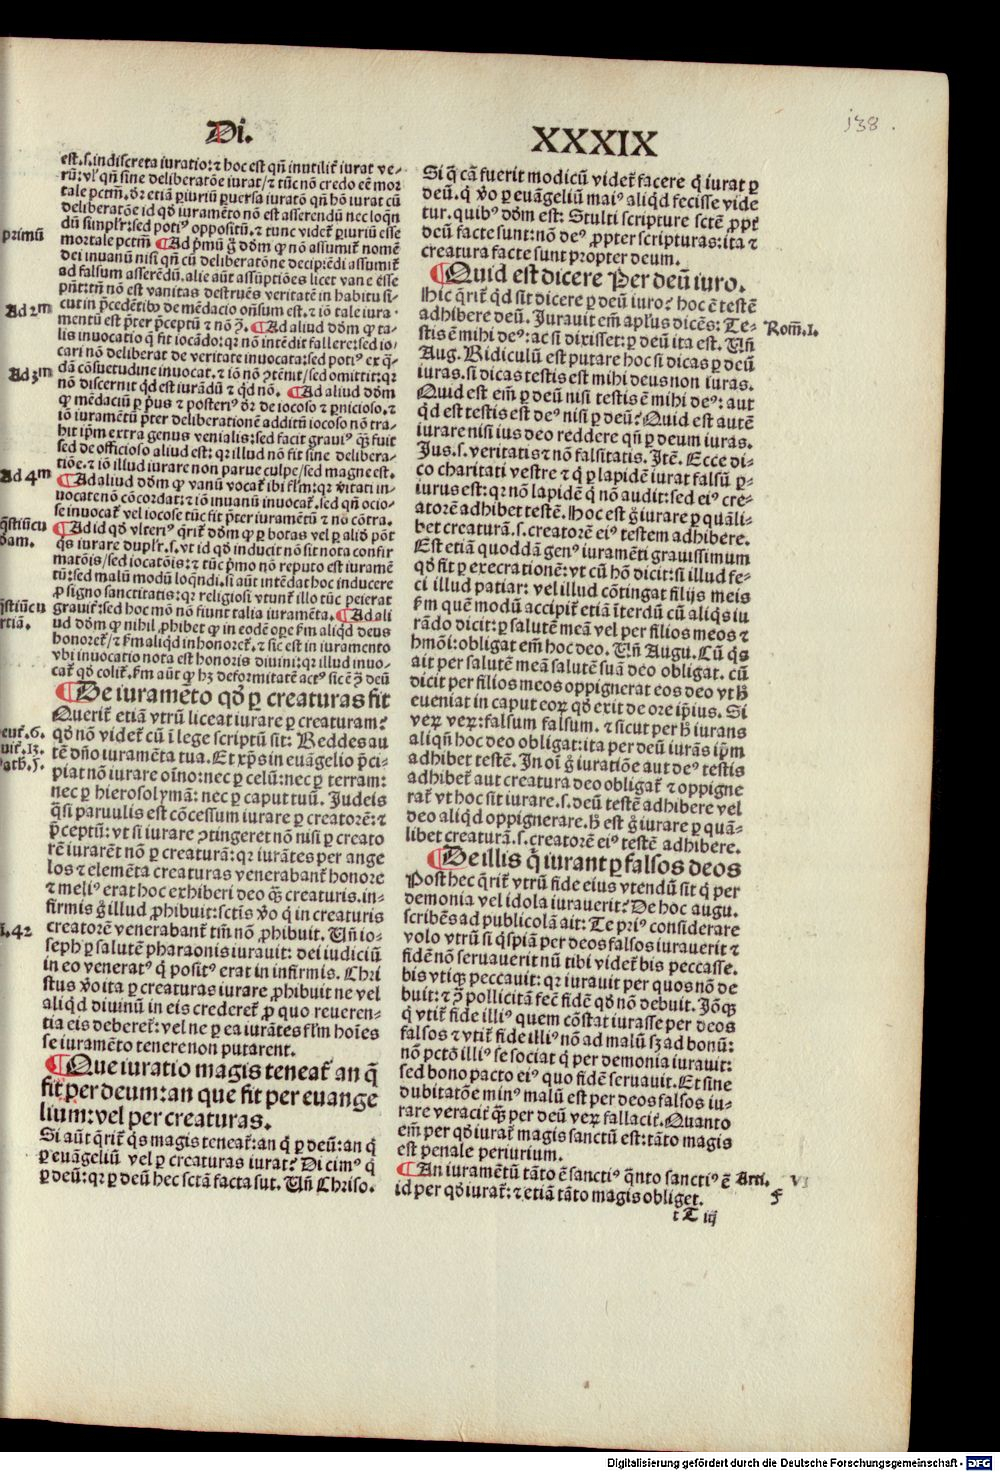 Di. XXXIX
138.
est. s. indiscreta iuratio: ⁊ hoc est qñ inutilit̃ iurat ve-
rū: vl̓ qñ sine deliberatōe iurat/ ⁊ tūc nō credo eē mor
tale pctm̄. dr̄ etiā ꝑiuriū ꝑuersa iuratō qñ hō iurat cū
deliberatōe id qd̓ iuramēto nō est asserendū nec loqn̄
dū simplr̄: sed potiꝰ oppositū. ⁊ tunc videt̃ ꝑiuriū esse
mortale pctm̄ ¶Ad p̄mū g̊ dd̓m ꝙ nō assumit̃ nomē
dei inuanū nisi qñ cū deliberatōne deciprēdi assumit̃
ad falsum asserēdū. alie aūt assūptiōes licet vane esse
pn̄t: tn̄ nō est vanitas destruēs veritatē in habitu si-
cut in p̄cedētibꝰ de mēdacio oñsum est. ⁊ iō tale iura-
mentū est p̄ter p̄ceptū ⁊ nō ꝯ̄. ¶Ad aliud dd̓m ꝙ ta-
lis inuocatio q̄ fit iocādo: qꝛ nō intēdit fallere: sed io-
cari nō deliberat de veritate inuocata: sed potiꝰ ex q̄-
dā cōsuetudine inuocat. ⁊ iō nō ꝯtēnit/ sed omittit: qꝛ
nō discernit qd̓ est iurādū ⁊ qd̓ nō. ¶Ad aliud dd̓m
ꝙ mēdaciū ꝑ p̄us ⁊ posteriꝰ dr̄ de iocoso ⁊ ꝑnicioso. ⁊
iō iuramētū p̄ter deliberationē additū iocoso nō tra-
hit ip̄m extra genus venialis: sed facit grauiꝰ q̄ fuit
sed de officioso aliud est: qꝛ illud nō fit sine delibera-
tiōe. ⁊ iō illud iurare non parue culpe/ sed magne est.
¶Ad aliud dd̓m ꝙ vanū vocat̃ ibi fl̓m: qꝛ v̓itati in-
uocate nō cōcordat: ⁊ iō inuanū inuocat̃. sed qñ ocio-
se inuocat̃ vel iocose tūc fit p̄ter iuramētū ⁊ nō cōtra.
¶Ad id qd̓ vlteriꝰ q̄rit̃ dd̓m ꝙ ꝑ botas vel ꝑ aliō pōt
q̄s iurare duplr̄. s. vt id qd̓ inducit nō sit nota confir
matōis/ sed iocatōis: ⁊ tūc p̄mo nō reputo est iuramē
tū: sed malū modū loqn̄di. si aūt intēdat hoc inducere
ꝓ signo sanctitatis: qꝛ religiosi vtunt̃ illo tūc peierat
grauit̃: sed hoc mō nō fiunt talia iuramēta. ¶Ad ali
ud dd̓m ꝙ nihil ꝓhibet ꝙ in eodē oꝑe fm̄ aliqd̓ deus
honoret̃/ ⁊ fm̄ aliqd̓ inhonoret̃. ⁊ sic est in iuramento
vbi inuocatio nota est honoris diuini: qꝛ illud inuo-
cat̃ qd̓ colit̃. fm̄ aūt ꝙ hꝫ deformitatē actꝰ sic ē ꝯ̄ deū
¶De iuramēto qd̓ ꝑ creaturas fit
Querit̃ etiā vtrū liceat iurare ꝑ creaturam?
qd̓ nō videt̃ cū ī lege scriptū sit: Reddes au
tē dn̄o iuramēta tua. Et xp̄s in euāgelio p̄ci-
piat nō iurare oīno: nec ꝑ celū: nec ꝑ terram:
nec ꝑ hierosolymā: nec ꝑ caput tuū. Judeis
q̄si paruulis est cōcessum iurare ꝑ creatorē: ⁊
p̄ceptū: vt si iurare ꝯtingeret nō nisi ꝑ creato
rē iurarēt nō ꝑ creaturā: qꝛ iurātes per ange
los ⁊ elemēta creaturas venerabant̃ honore
⁊ meliꝰ erat hoc exhiberi deo q̄ꝫ creaturis. in-
firmis g̊ illud ꝓhibuit: sctīs v̓o q̇ in creaturis
creatorē venerabant̃ tm̄ nō ꝓhibuit. Vñ io-
seph ꝑ salutē pharaonis iurauit: dei iudiciū
in eo veneratꝰ q̇ positꝰ erat in infirmis. Chri
stus v̓o ita ꝑ creaturas iurare ꝓhibuit ne vel
aliqd̓ diuinū in eis crederet̃ ꝓ quo reueren-
tia eis deberet̃: vel ne ꝑ ea iurātes fl̓m hoīes
se iuramēto tenere non putarent.
¶Que iuratio magis teneat̃ an q̄
fit per deum: an que fit per euange
lium: vel per creaturas.
Si aūt q̄rit̃ q̄s magis teneat̃: an q̇ ꝑ deū: an q̇
ꝑ euāgeliū vel ꝑ creaturas iurat? Dicimꝰ q̇
ꝑ deū: qꝛ ꝑ deū hec sctā facta sūt. Vñ Chriso.
primū
Ad 2m
Ad 3m
Ad 4m
q̄stiūcu
dam.
q̄stiūcu
rtiā.
eut̃. 6.
uit̃. 13.
ath̓. 5.
i. 42
Si q̄ cā fuerit modicū videt̃ facere q̇ iurat ꝑ
deū. q̇ v̓o ꝑ euāgeliū maiꝰ aliqd̓ fecisse vide
tur. quibꝰ dd̓m est: Stulti scripture sctē ꝓpt̃
deū facte sunt: nō deꝰ ꝓpter scripturas: ita ⁊
creatura facte sunt propter deum.
¶Quid est dicere Per deū iuro.
Hic q̄rit̃ qd̓ sit dicere ꝑ deū iuro? hoc ē testē
adhibere deū. Jurauit em̄ apl̓us dicēs: Te-
stis ē mihi deꝰ: ac si dixisset: ꝑ deū ita est. Vñ
Aug. Ridiculū est putare hoc si dicas ꝑ deū
iuras. si dicas testis est mihi deus non iuras.
Quid est em̄ ꝑ deū nisi testis ē mihi deꝰ: aut
qd̓ est testis est deꝰ nisi ꝑ deū? Quid est autē
iurare nisi ius deo reddere qñ ꝑ deum iuras.
Jus. s. veritatis ⁊ nō falsitatis. Itē. Ecce di-
co charitati vestre ⁊ q̇ ꝑ lapidē iurat falsū ꝑ-
iurus est: qꝛ nō lapidē q̇ nō audit: sed eiꝰ cre-
atorē adhibet testē. Hoc est g̊ iurare ꝑ quāli-
bet creaturā. s. creatorē eiꝰ testem adhibere.
Est etiā quoddā genꝰ iuramēti grauissimum
qd̓ fit ꝑ execrationē: vt cū hō dicit: si illud fe-
ci illud patiar: vel illud cōtingat filijs meis
fm̄ quem modū accipit̃ etiā īterdū cū aliq̄s iu
rādo dicit: ꝑ salutē meā vel per filios meos ⁊
hmōi: obligat em̄ hoc deo. Vñ Augu. Cū q̄s
ait per salutē meā salutē suā deo obligat. cū
dicit per filios meos oppignerat eos deo vt h̓
eueniat in caput eoꝝ qd̓ exit de ore ip̄ius. Si
veꝝ veꝝ: falsum falsum. ⁊ sicut per h̓ iurans
aliqn̄ hoc deo obligat: ita per deū iurās ip̄m
adhibet testē. In oī g̊ iuratiōe aut deꝰ testis
adhibet̃ aut creatura deo obligat̃ ⁊ oppigne
rat̃ vt hoc sit iurare. s. deū testē adhibere vel
deo aliqd̓ oppignerare. h̓ est g̊ iurare ꝑ quā-
libet creaturā. s. creatorē eiꝰ testē adhibere.
¶De illis q̇ iurant ꝑ falsos deos
Post hec q̄rit̃ vtrū fide eius vtendū sit q̇ per
demonia vel idola iurauerit? De hoc augu.
scribēs ad publicolā ait: Te priꝰ considerare
volo vtrū si q̄spiā per deos falsos iurauerit ⁊
fidē nō seruauerit nū tibi videt̃ bis peccasse.
bis vtiqꝫ peccauit: qꝛ iurauit per quos nō de
buit: ⁊ ꝯ̄ pollicitā fecit fidē qd̓ nō debuit. Jōqꝫ
q̇ vtit̃ fide illiꝰ quem cōstat iurasse per deos
falsos ⁊ vtit̃ fide illiꝰ nō ad malū sꝫ ad bonū:
nō pctō illiꝰ se sociat q̇ per demonia iurauit:
sed bono pacto eiꝰ quo fidē seruauit. Et sine
dubitatōe minꝰ malū est per deos falsos iu-
rare veracit̃ q̄ꝫ per deū veꝝ fallacit̃. Quanto
em̄ per qd̓ iurat̃ magis sanctū est: tāto magis
est penale periurium.
¶An iuramētū tāto ē sanctiꝰ q̄nto sanctiꝰ ē
id per qd̓ iurat̃: ⁊ etiā tāto magis obliget.
Rom̄. 1.
Arti. VI
f
t T iiij
Digitalisierung gefördert durch die Deutsche Forschungsgemeinschaft - DFG